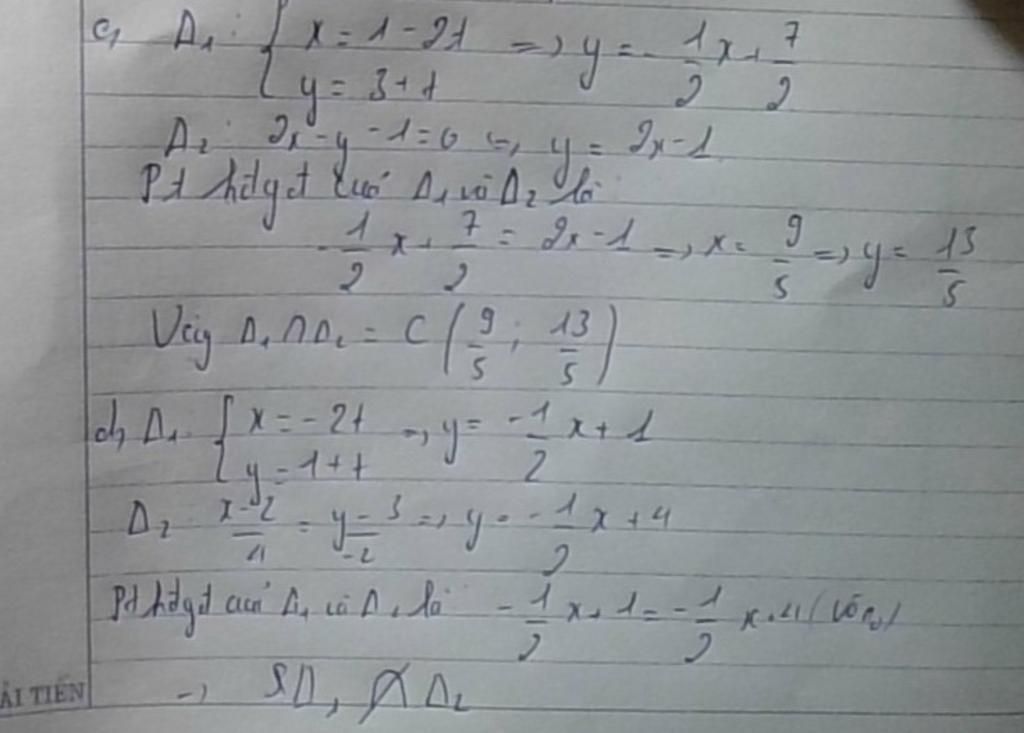 c, Δ₁: { x = 1 - 2t => y = -1/2 x + 7/2
y = 3 + t
Δ₂: 2x - y - 1 = 0 => y = 2x - 1
Pt hđgđ của Δ₁ và Δ₂ là
-1/2 x + 7/2 = 2x - 1 => x = 9/5 => y = 13/5
Vậy Δ₁ ∩ Δ₂ = C (9/5 ; 13/5)
d, Δ₁ { x = -2t => y = -1/2 x + 1
y = 1 + t
Δ₂ (x - 2)/4 = (y - 3)/-2 => y = -1/2 x + 4
Pt hđgđ của Δ₁ và Δ₂ là -1/2 x + 1 = -1/2 x + 4 (vô no)
ẢI TIẾN